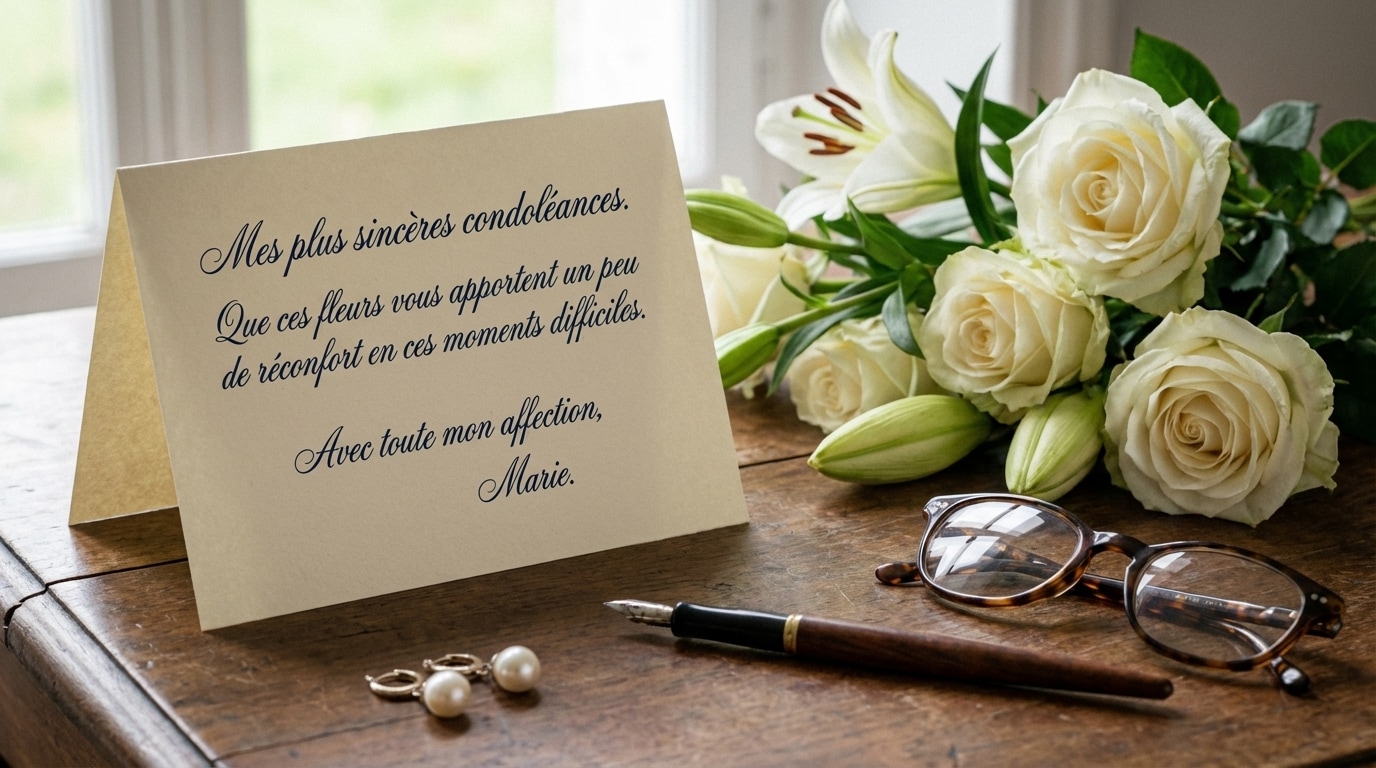 Mes plus sincères condoléances.
Que ces fleurs vous apportent un peu
de réconfort en ces moments difficiles.
Avec toute mon affection,
Marie.